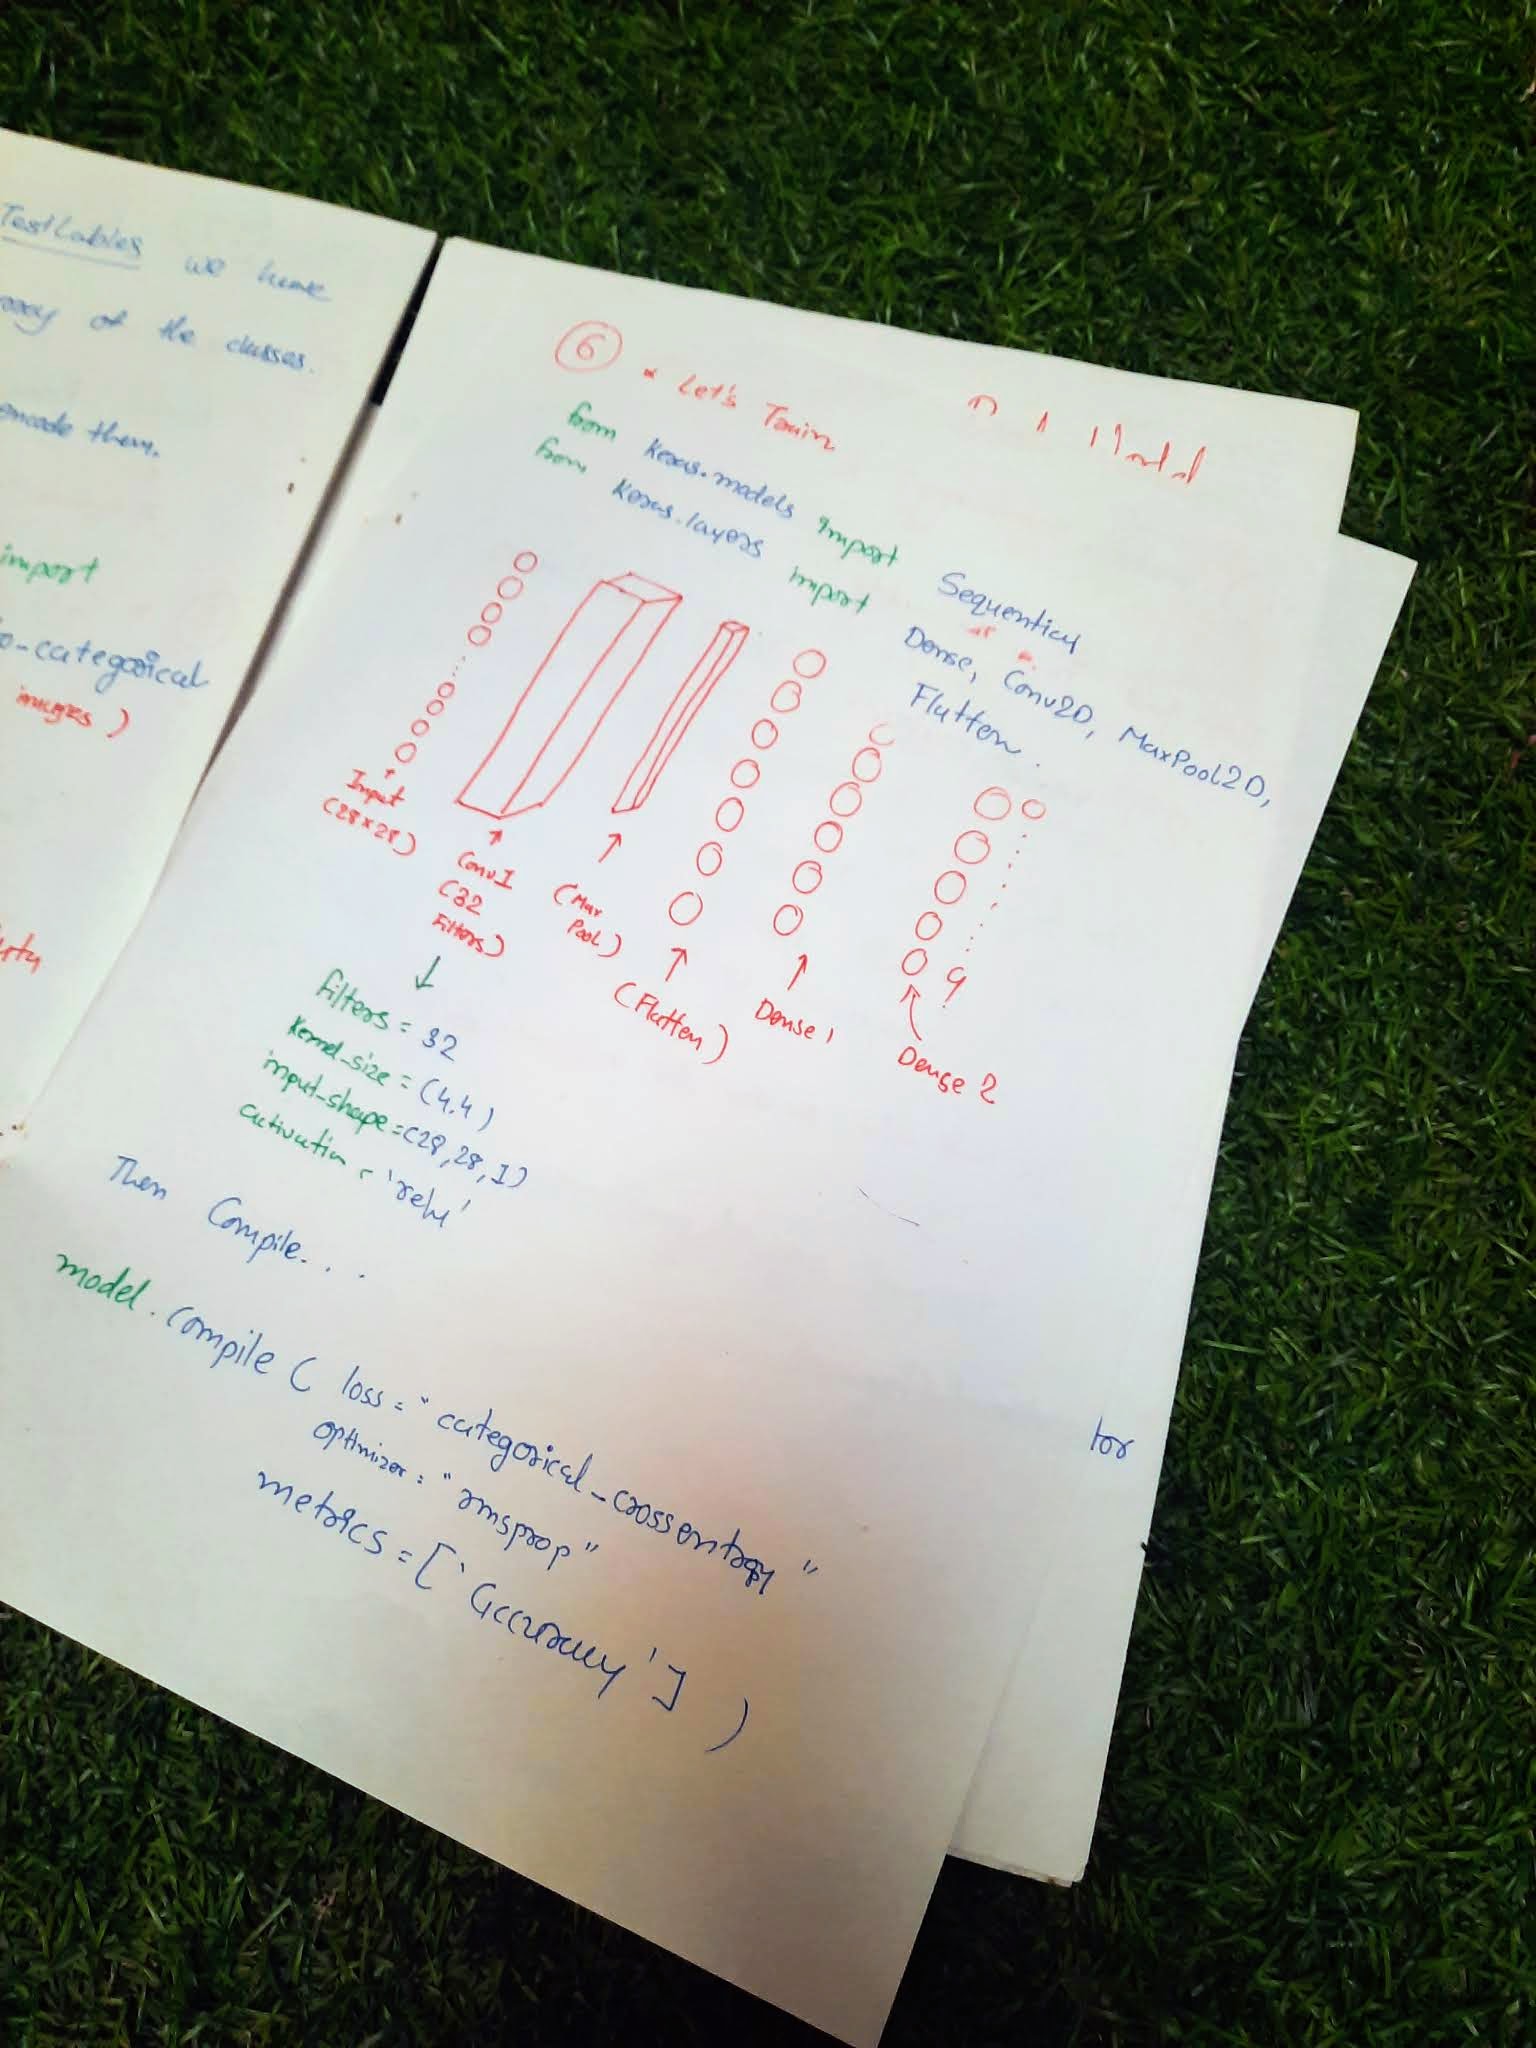 TestLables we have
of the classes.
encode them.
import
to-categorical
images )
6
Let's Train
from Keras.models import Sequential
from Keras.layers import Dense, Conv2D, MaxPool2D,
Flatten.
Input
(28x28)
Conv1
(32
Filters)
(Max
Pool)
(Flatten)
Dense 1
0
9
Dense 2
filters = 32
Kernel_size = (4,4)
input_shape = (28,28,1)
activation = 'relu'
Then Compile...
model.compile ( loss = "categorical_crossentropy"
optimizer = "rmsprop"
metrics = ['accuracy'] )
for